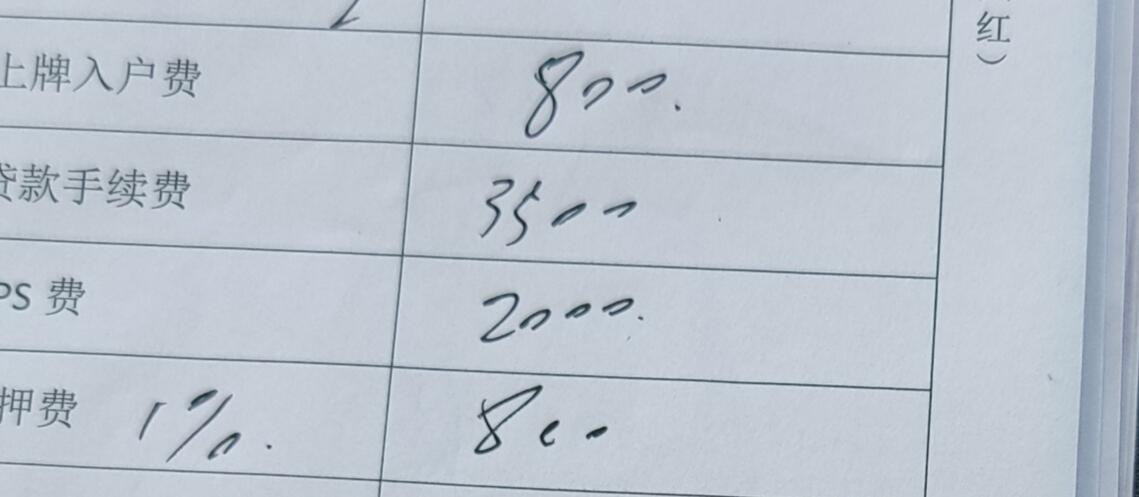 红）
上牌入户费 800.
贷款手续费 3500
PS 费 2000.
押费 1%. 800